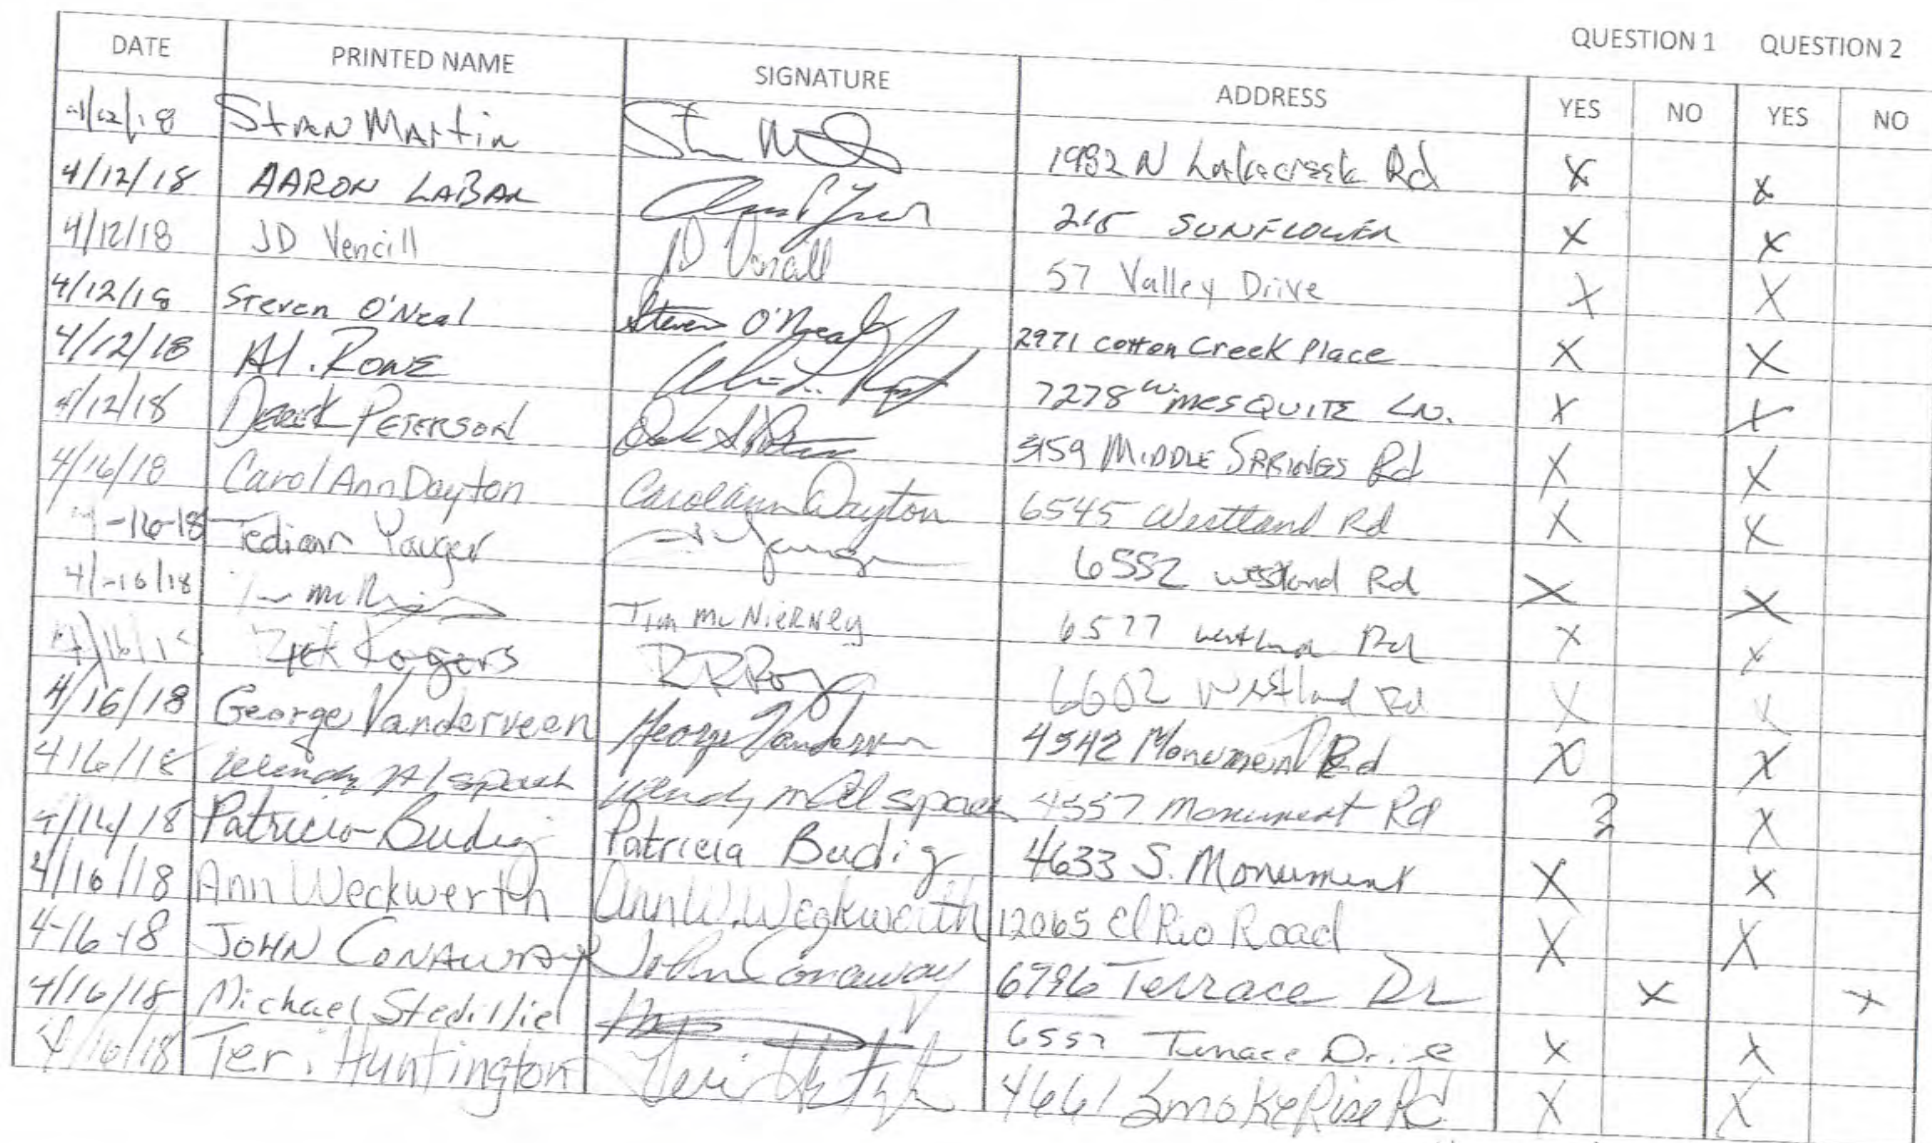 QUESTION 1 QUESTION 2
DATE PRINTED NAME SIGNATURE ADDRESS YES NO YES NO
4/12/18 Stan Martin 1982 N Lakecreek Rd X X
4/12/18 AARON LABAR 215 SUNFLOWER X X
4/12/18 JD Vencill JD Vencill 57 Valley Drive X X
4/12/18 Steven O'Neal Steven O'Neal 2971 Cotton Creek Place X X
4/12/18 Al. ROWE 7278 W MESQUITE LN. X X
4/12/18 DEREK PETERSON 3159 MIDDLE SPRINGS Rd X X
4/16/18 Carol Ann Dayton Carol Ann Dayton 6545 Westland Rd X X
4-16-18 Tediann Yauger 6552 Westland Rd X X
4/-16/18 Tim McNIERNEY 6577 Westland Rd X X
4/16/18 Rick Rogers 6602 Westland Rd X X
4/16/18 George Vanderveen George Vanderveen 4542 Monument Rd X X
416/18 Wendy Alspach Wendy M Alspach 4557 Monument Rd ? X
4/16/18 Patricia Budig Patricia Budig 4633 S. Monument X X
4/16/18 Ann Weckwerth Ann W. Weckwerth 12065 El Rio Road X X
4-16-18 JOHN CONAWAY John Conaway 6796 Terrace Dr X X
4/16/18 Michael Stedillie 6557 Terrace Drive X X
4/16/18 Teri Huntington 4661 Smoke Rise Rd X X